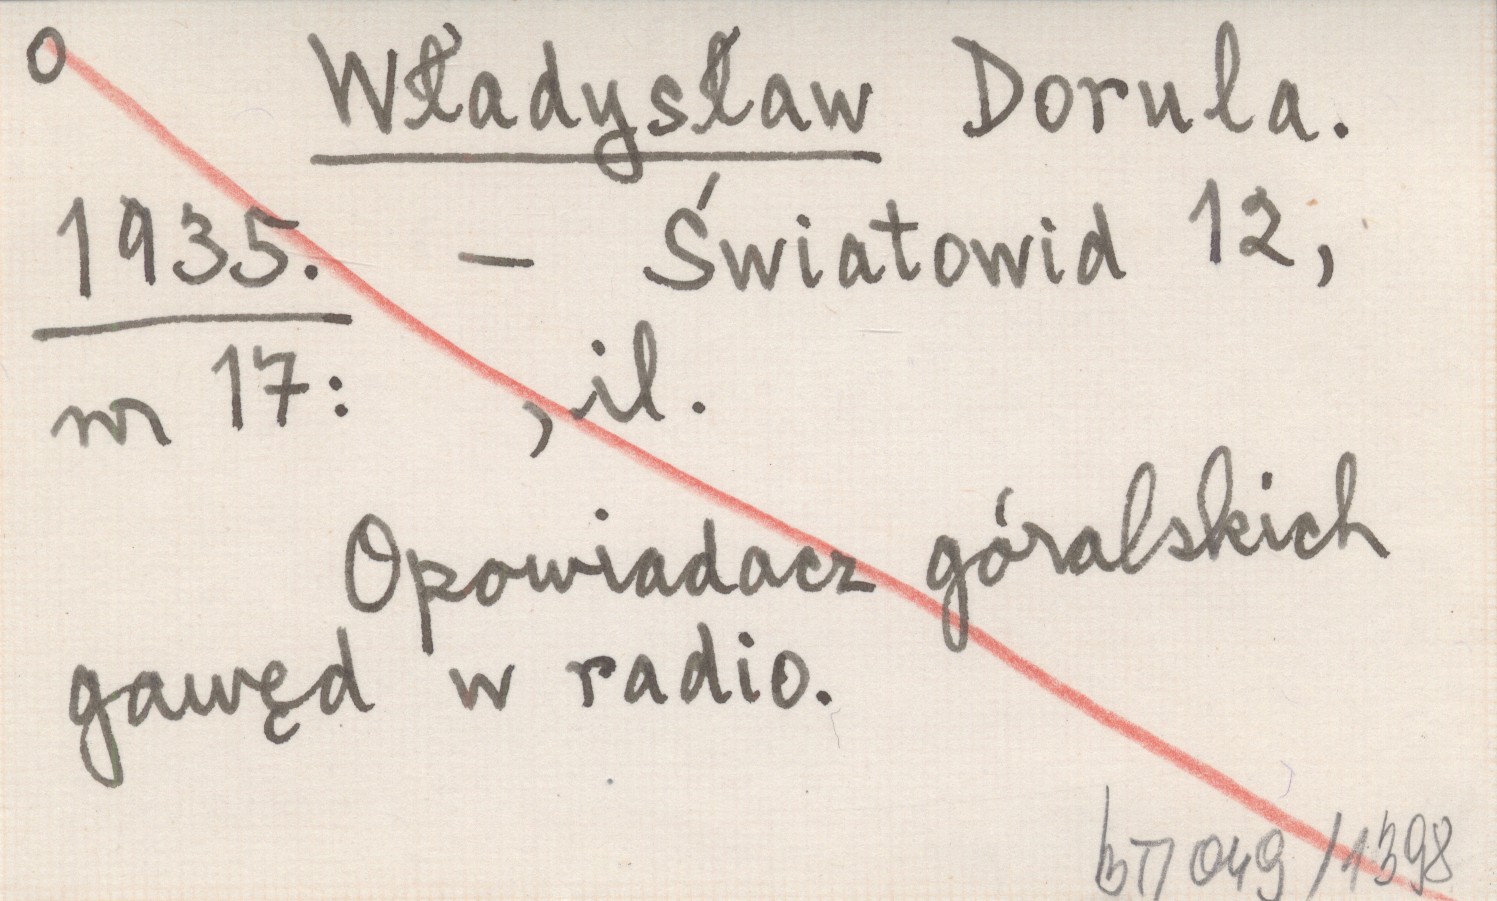 o Władysław Doruła.
1935. – Światowid 12,
nr 17: , il.
Opowiadacz góralskich
gawęd w radio.
049/1398